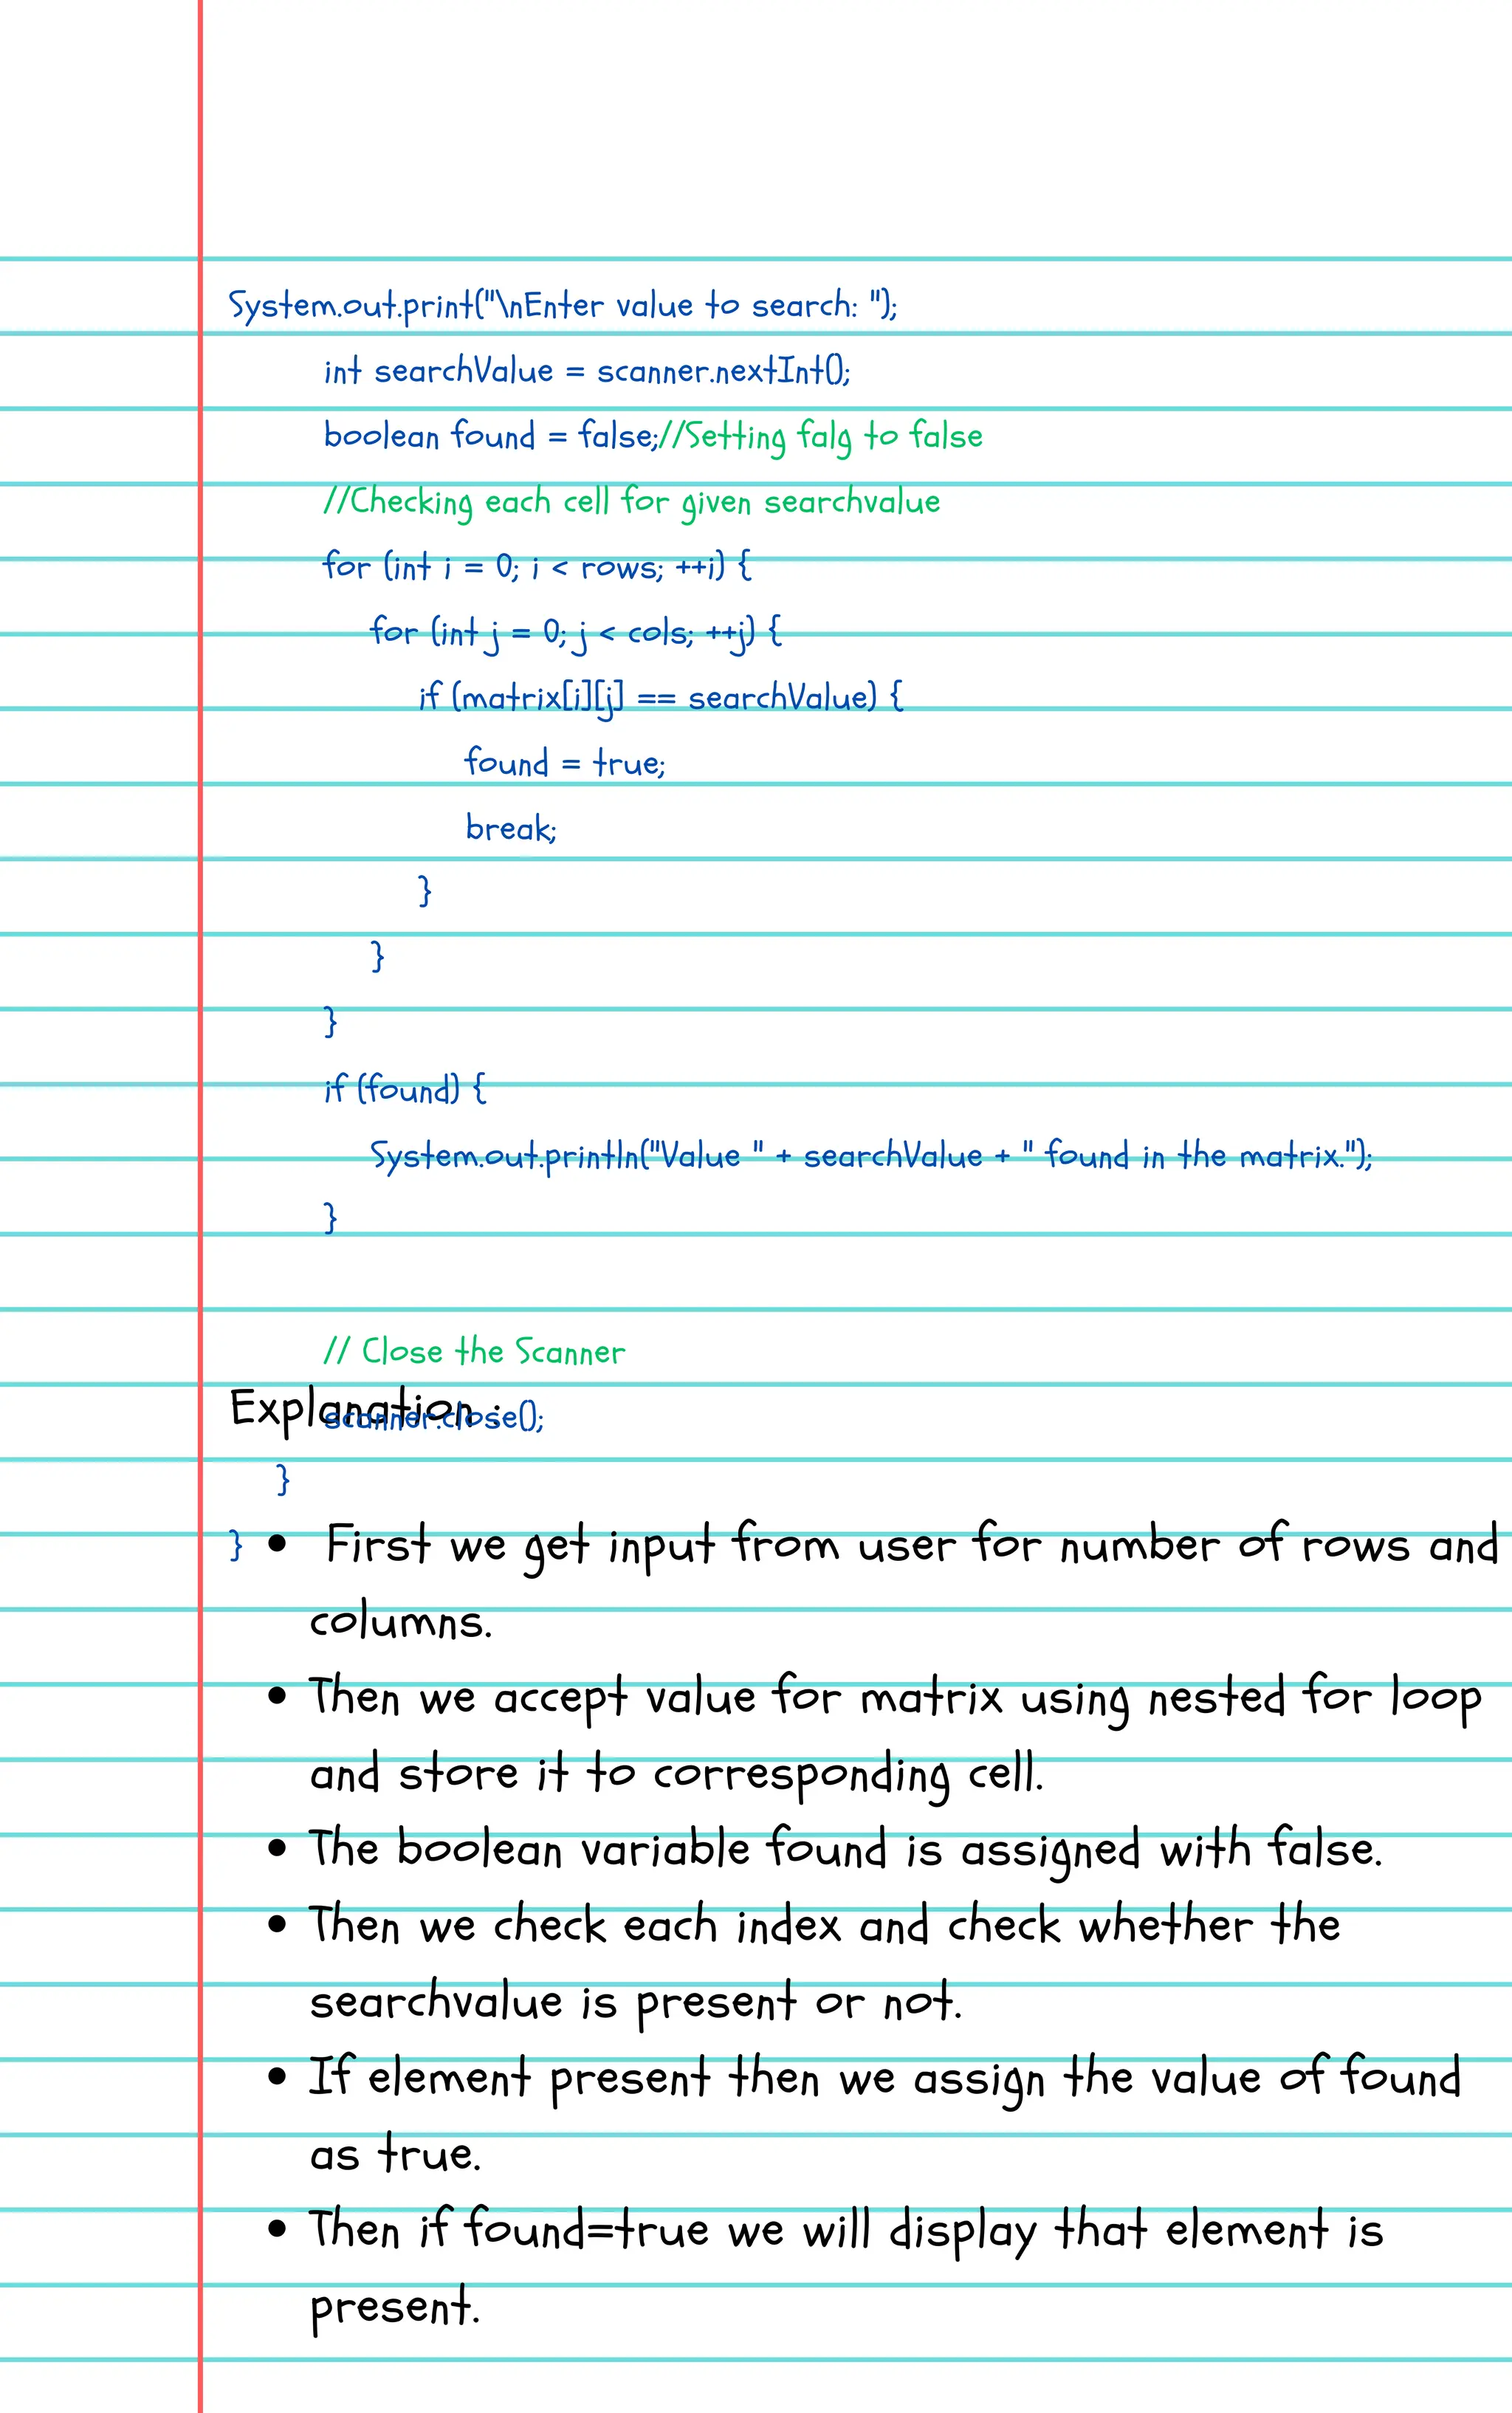 System.out.print("\nEnter value to search: ");
int searchValue = scanner.nextInt();
boolean found = false;//Setting falg to false
//Checking each cell for given searchvalue
for (int i = 0; i < rows; ++i) {
for (int j = 0; j < cols; ++j) {
if (matrix[i][j] == searchValue) {
found = true;
break;
}
}
}
if (found) {
System.out.println("Value " + searchValue + " found in the matrix.");
}
// Close the Scanner
Explanation :
scanner.close();
}
}
• First we get input from user for number of rows and
columns.
• Then we accept value for matrix using nested for loop
and store it to corresponding cell.
• The boolean variable found is assigned with false.
• Then we check each index and check whether the
searchvalue is present or not.
• If element present then we assign the value of found
as true.
• Then if found=true we will display that element is
present.